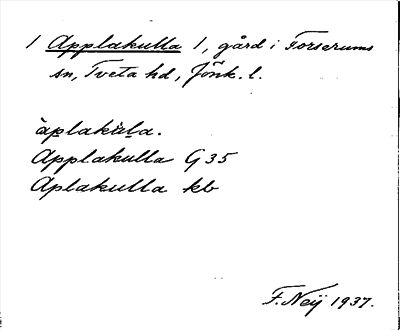 1 Applakulla 1, gård i Forserums
sn, Tveta hd, Jönk. l.
àplakùla.
Applakulla G 35
Aplakulla kb
F. Neij 1937.